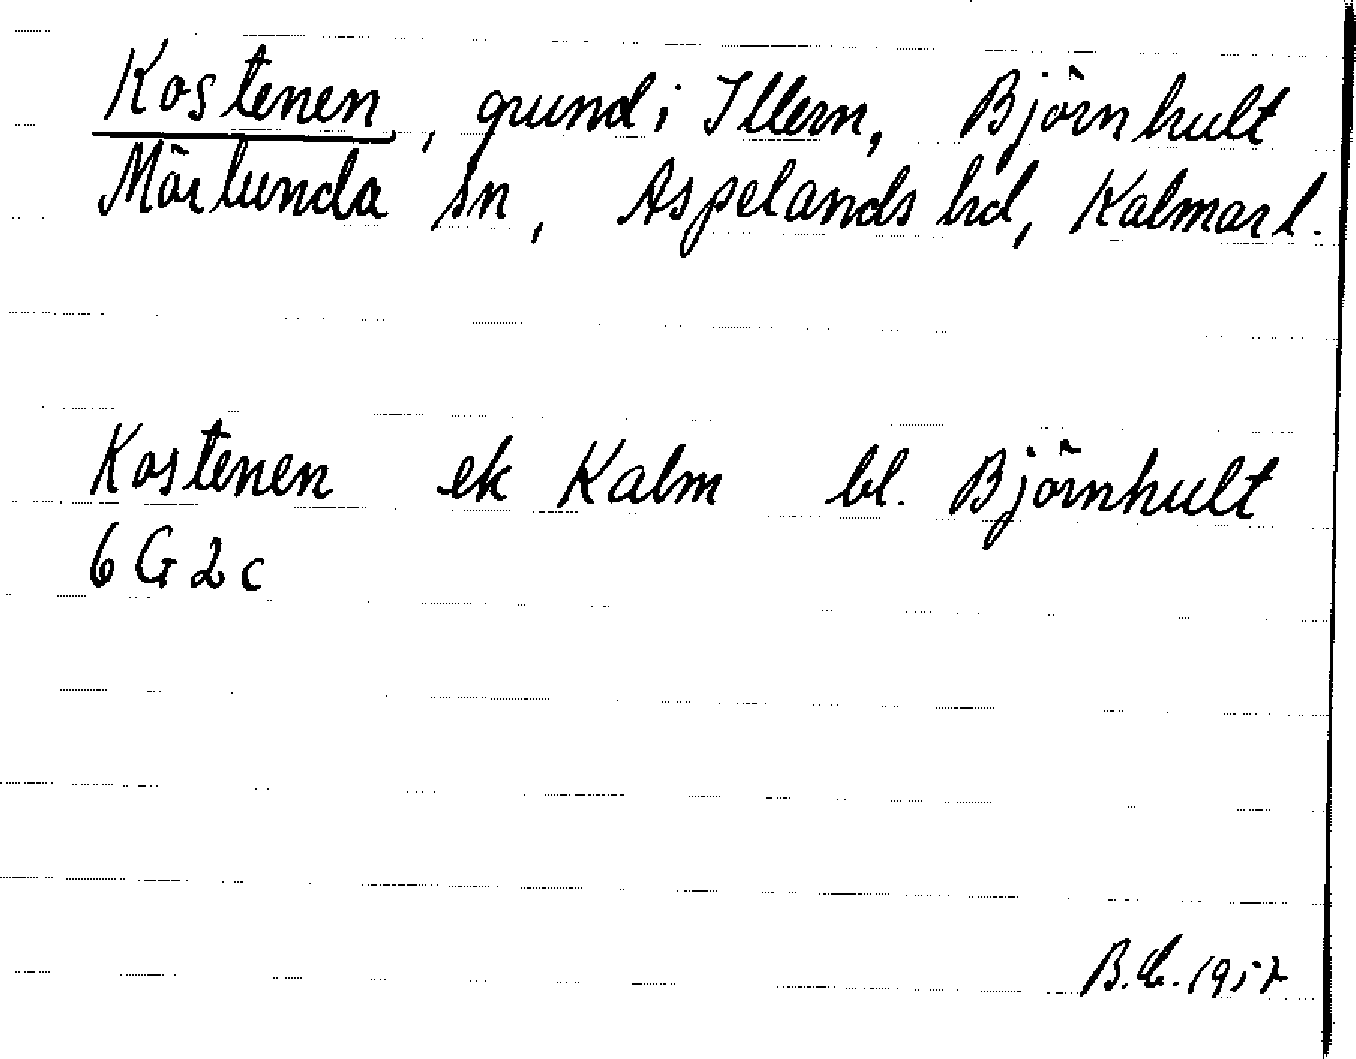 Kostenen, grund i Illern, Björnhult
Mörlunda sn, Aspelands hd, Kalmar l.
Kostenen ek Kalm bl. Björnhult
6G2c
1957